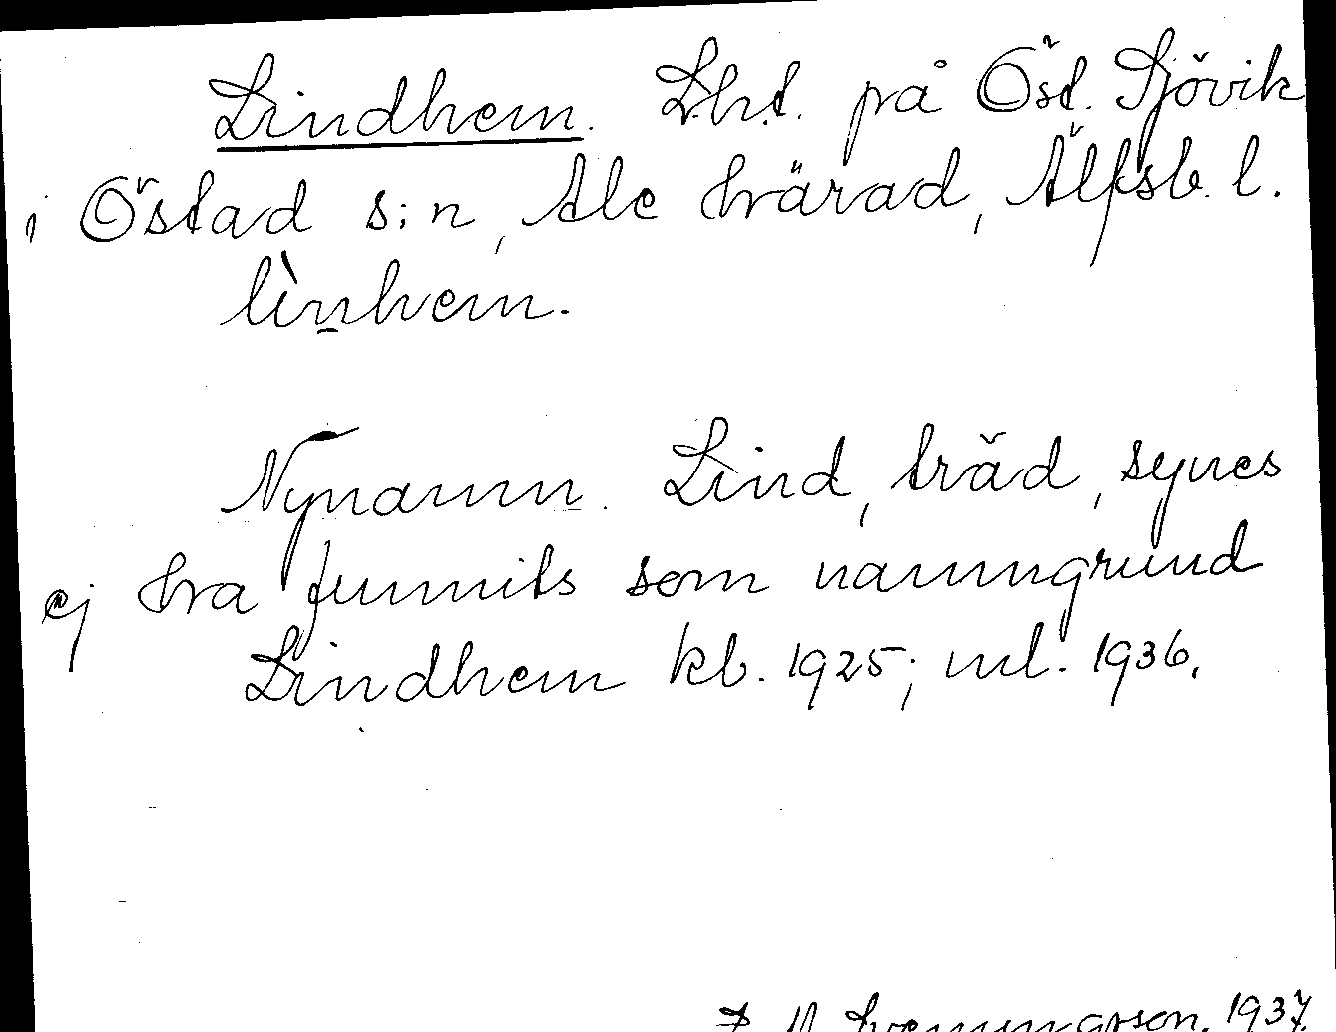 Lindhem. Lht. på Öst. Sjövik
i Östad s:n, Ale härad, Älfsb. l.
lìn̠hem.
Nynamn. Lind, träd, synes
ej ha funnits som namngrund
Lindhem kb. 1925; ml. 1936.
1937.